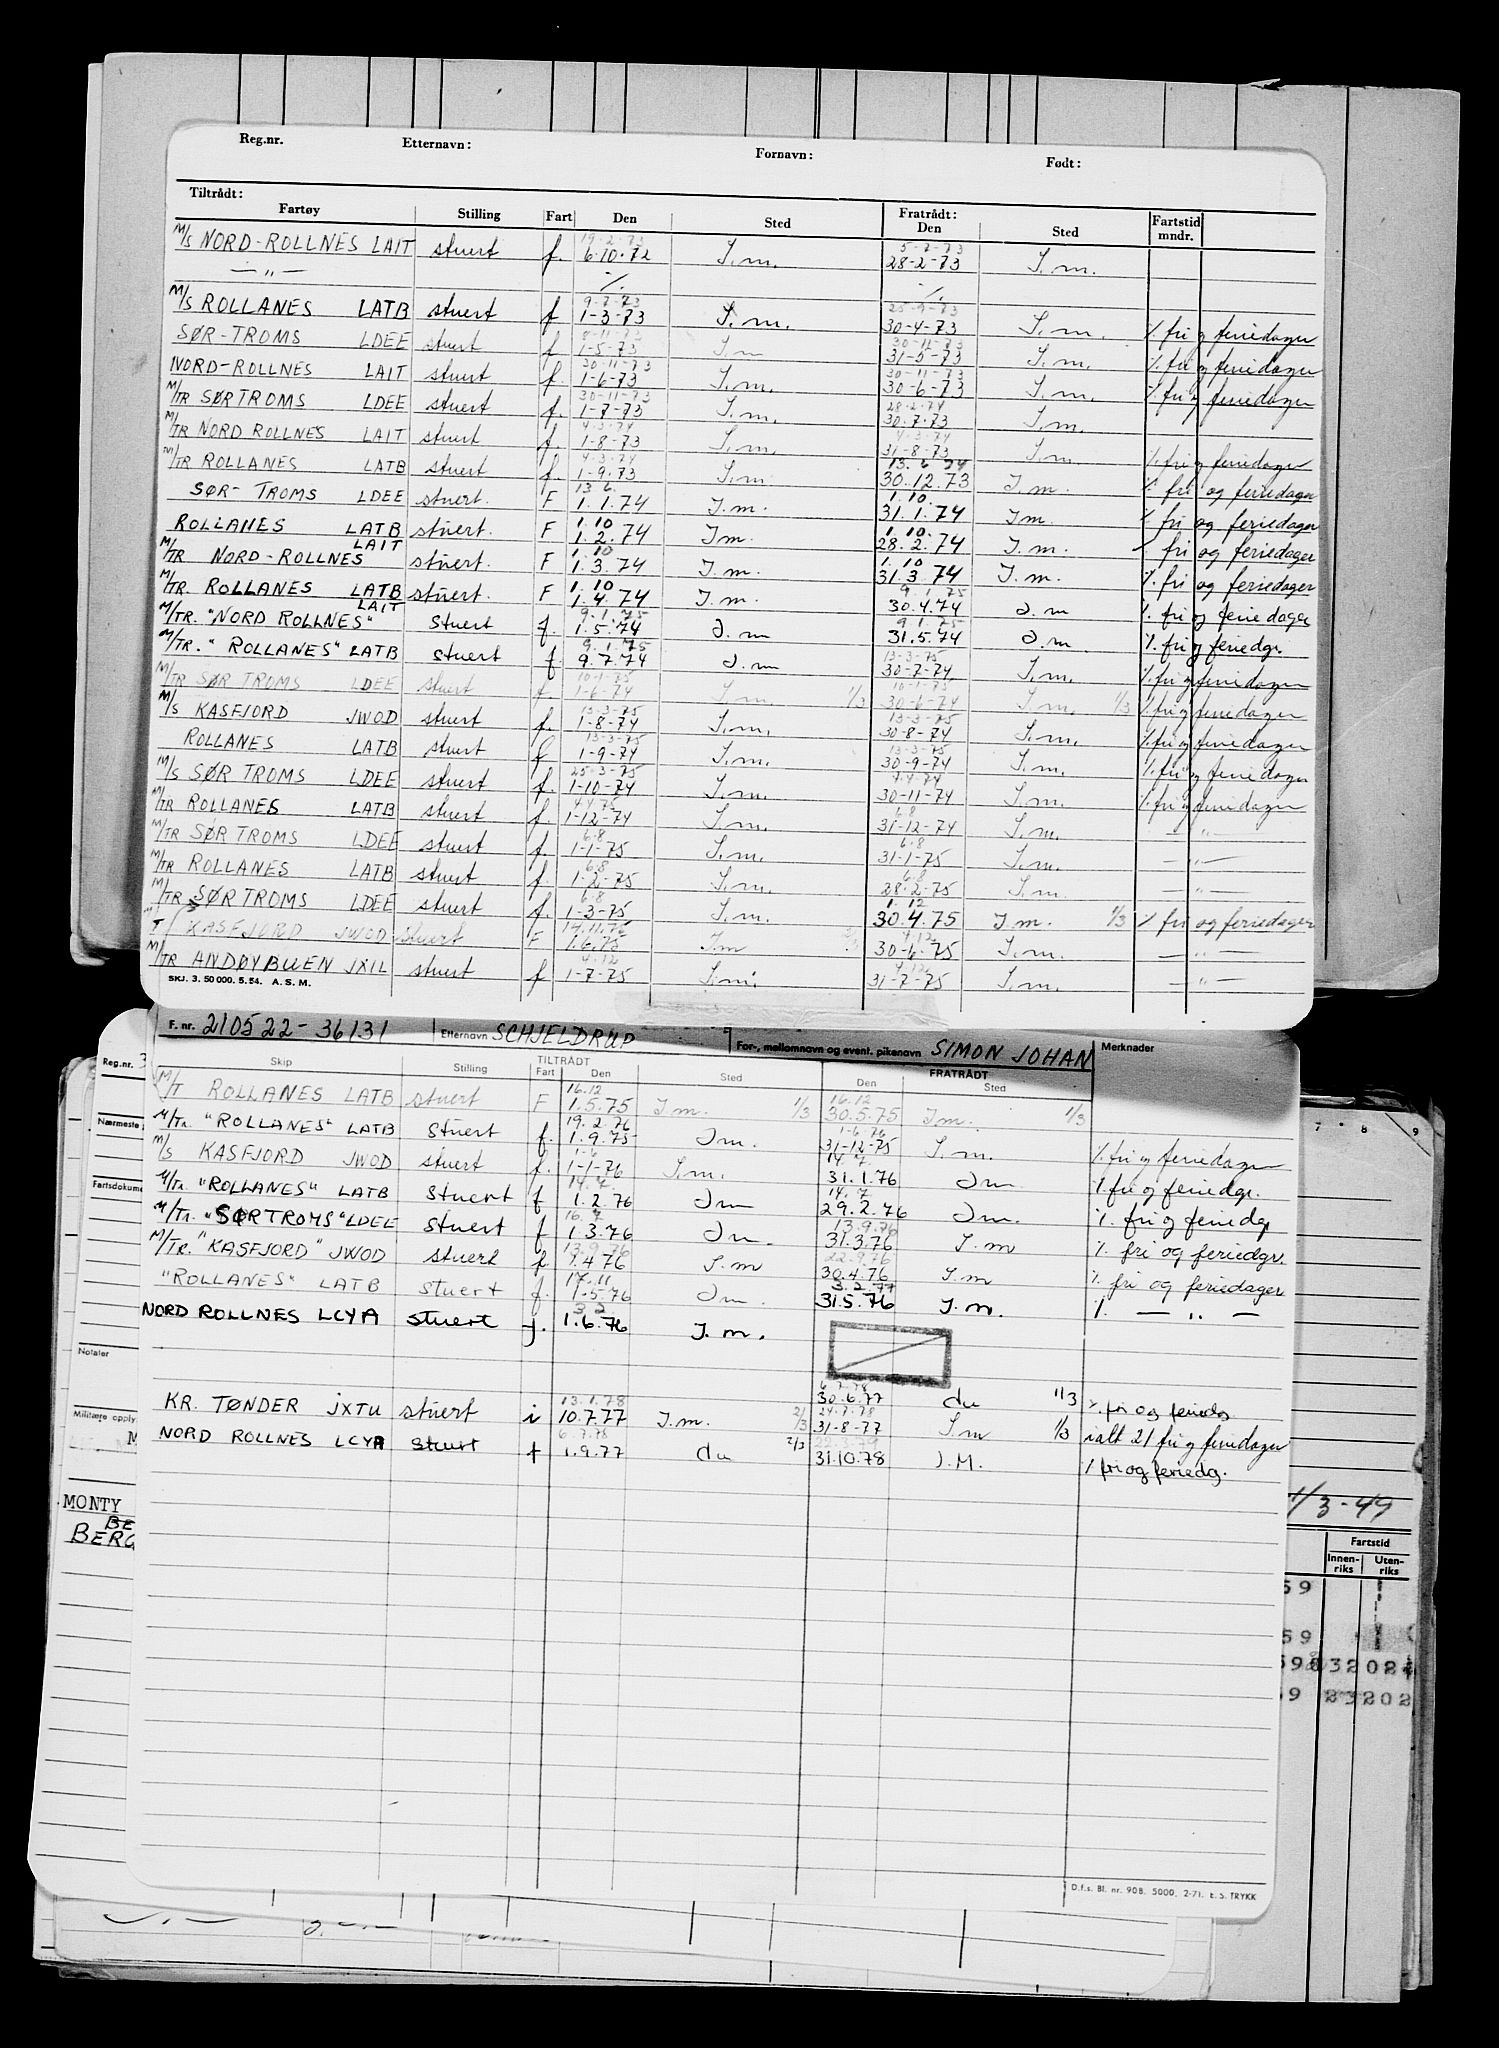 Reg.nr. Etternavn: Fornavn: Født:
Tiltrådt: Fratrådt:
Fartøy Stilling Fart Den Sted Den Sted Fartstid mndr.
19-2-73 5-7-73
M/S NORD-ROLLNES LAIT stuert f. 6.10.72 I.m. 28-2-73 I.m.
— " — ./. ./.
9-7-73 25-9-73
M/S ROLLANES LATB stuert f 1-3-73 I.m. 30-4-73 I.m. % fri og feriedager
8-11-73 30-11-73
SØR-TROMS LDEE stuert f 1-5-73 I.m 31-5-73 I.m. % fri og feriedager
30-11-73 30-11-73
NORD-ROLLNES LAIT stuert f. 1-6-73 I.m. 30-6-73 I.m. % fri og feriedager
30-11-73 28-2-74
M/TR SØR TROMS LDEE stuert f. 1-7-73 I.m. 30.7.73 I.m.
4-3-74 4-3-74
M/TR NORD ROLLNES LAIT stuert f. 1-8-73 I.m. 31-8-73 I.m. % fri og feriedager
4-3-74 13.6 74
M/TR ROLLANES LATB stuert f. 1-9.73 I.m. 30.12.73 I.m. % fri og feriedager
13 6 1.10.
SØR-TROMS LDEE stuert. F 1.1.74 I.m. 31.1.74 I.m. % fri og feriedager
1.10 1.10.
ROLLANES LATB stuert. F 1.2.74 I.m. 28.2.74 I.m. % fri og feriedager
1.10 1.10
M/TR NORD-ROLLNES LAIT stuert. F 1.3.74 I.m. 31.3.74 I.m. % fri og feriedager
1.10 9.1.75
M/TR. ROLLANES LATB stuert. F 1.4.74 I.m. 30.4.74 I.m % fri og feriedager
9.1.75 9.1.75
M/TR. "NORD ROLLNES" LAIT stuert f. 1.5.74 I.m 31.5.74 I.m % fri og feriedgr.
9.1.75 13-3-75
M/TR. "ROLLANES" LATB stuert f 9.7.74 I.m 30-7-74 I.m. % fri og feriedager
10-1-75 10-1-75
M/TR SØR TROMS LDEE stuert f 1-6-74 I.m 1/3 30-6-74 I.m. 1/3 % fri og feriedager
13-3-75 13-3-75
M/S KASFJORD JWOD stuert f. 1-8-74 I.m. 30-8-74 I.m. % fri og feriedager
13-3-75 13-3-75
ROLLANES LATB stuert f 1-9-74 I.m. 30-9-74 I.m. % fri og feriedager
25-3-75 7-4-74
M/S SØR TROMS LDEE stuert f. 1-10-74 I.m. 30-11-74 I.m. % fri og feriedager
4-4-75 6.8
M/TR ROLLANES LATB stuert f. 1-12-74 I.m. 31-12-74 I.m. — " —
6.8 6.8
M/TR SØR TROMS LDEE stuert f. 1-1-75 I.m. 31-1-75 I.m. — " —
6.8 6.8
M/TR ROLLANES LATB stuert f. 1-2-75 I.m. 28.2-75 I.m — " —
6.8 1.12
M/TR SØR TROMS LDEE stuert f. 1-3-75 I.m. 30.4.75 I.m. 1/3 % fri og feriedager
KASFJORD JWOD stuert F 1.6.75 I.m 30-6-75 I.m. — " —
4.12 4.12
M/TR ANDØYBUEN JXIL stuert f 1-7-75 I.m. 31-7-75 I.m. — " —
SKJ. 3. 50 000. 5. 54. A. S. M.
F. nr. 210522-36131 Etternavn SCHJELDRUP For-, mellomnavn og event. pikenavn SIMON JOHAN Merknader
Reg.nr. 3
Skip Stilling TILTRÅDT Fart Den Sted FRATRÅDT Den Sted
16.12 16.12
M/T ROLLANES LATB stuert F 1.5.75 I.m. 1/3 30.5.75 I.m. 1/3
19.2.76 1-6-76
M/Tr. "ROLLANES" LATB stuert f. 1.9.75 I.m. 31-12-75 I.m. % fri og feriedager
1-6 14.7
M/S KASFJORD JWOD stuert f. 1-1-76 I.m. 31.1.76 I.m % fri og feriedgr.
14.7 14.7
M/Tr. "ROLLANES" LATB stuert f 1.2.76 I.m 29.2.76 I.m. % fri og feriedgr
16.7 13.9.76
M/Tr. "SØRTROMS" LDEE stuert f 1.3.76 I.m. 31.3.76 I.m % fri og feriedgr.
13.9.76
M/TR. "KASFJORD" JWOD stuert f 1.4 76 I.m 30.4.76 I.m % fri og feriedager
17.11 3.2.77
"ROLLANES" LATB stuert f. 1.5.76 I.m. 31.5.76 I.m. % — " —
3.2
NORD ROLLNES LCYA stuert f. 1.6.76 I.m.
13.1.78 6.7.78
KR. TØNDER JXTU stuert i 10.7.77 I.m. 2/3 30.6.77 du 1/3 % fri og feriedg
24.7.78
31-8-77 I.m 1/3 ialt 21 fri og feriedager
6.7.78
NORD ROLLNES LCYA stuert f 1.9.77 du 2/3 31.10.78 I.M. % fri og feriedg.
Nærmeste
Fartsdokume
Notater
Militære opply.
MONTY
BE
BERG
7 8 9
1/3-49
Fartstid
Innenriks Utenriks
D.f.s. Bl. nr. 908. 5000. 2-71. E.S. TRYKK